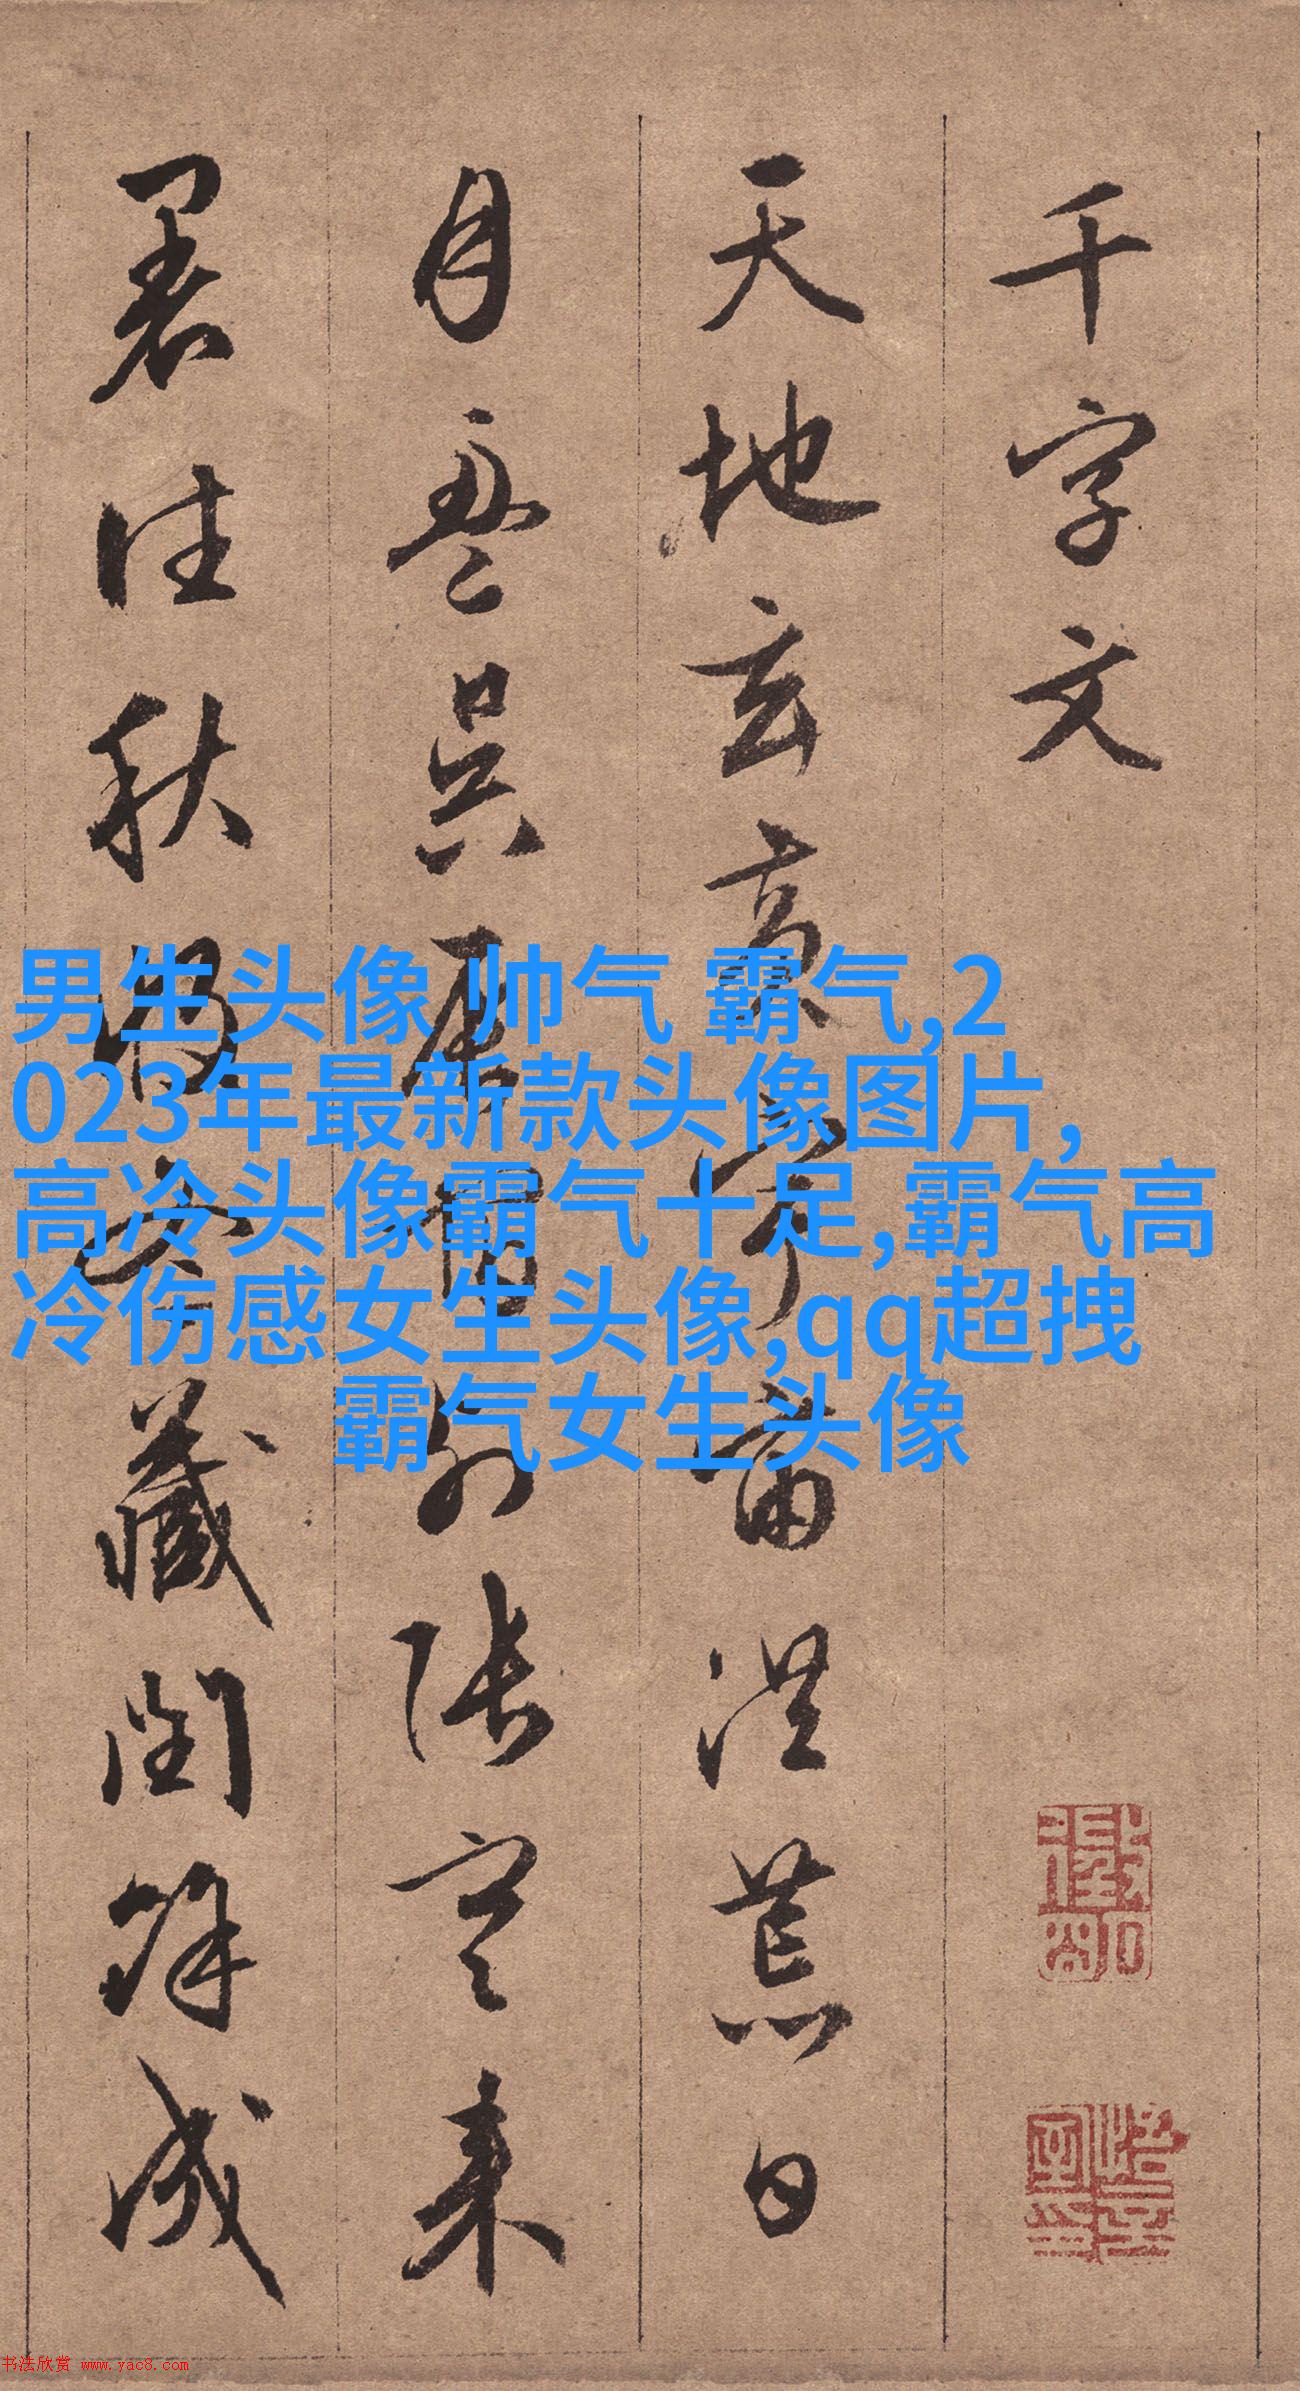 千字文
天地玄黃宇宙洪荒日
月盈昃辰宿列張寒来
暑往秋收冬藏閏餘成
男生头像 帅气 霸气,2
023年最新款头像图片,
高冷头像霸气十足,霸气高
冷伤感女生头像,qq超拽
霸气女生头像
书法欣赏 www.yac8.com